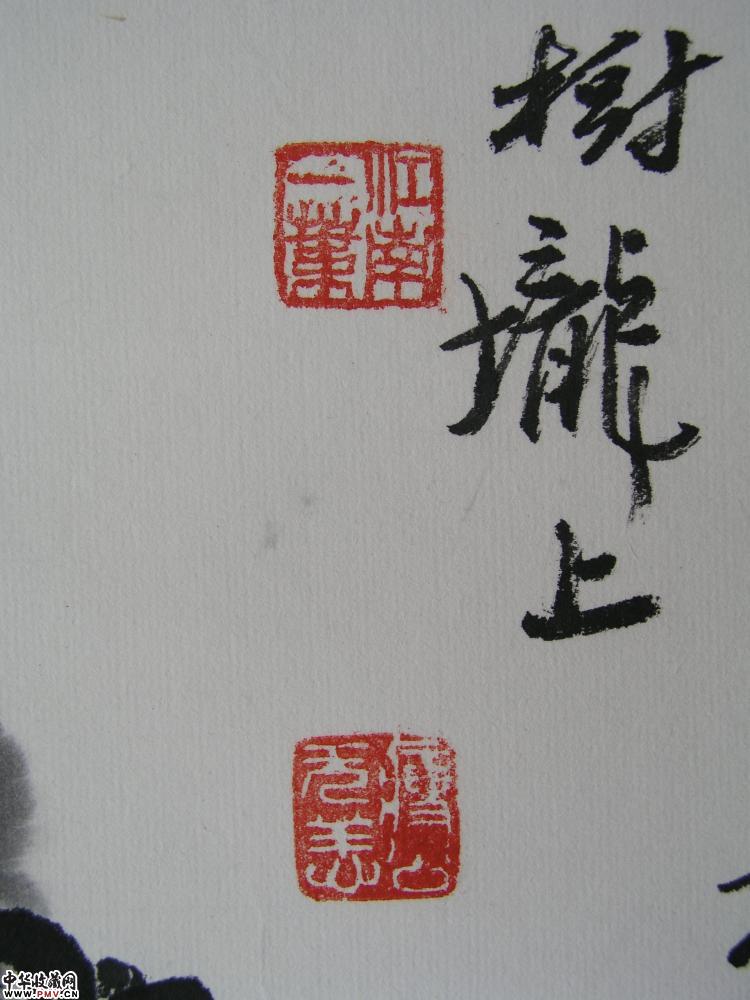 樹壠上
江南
一葉
中华收藏网
www.PMV.CN